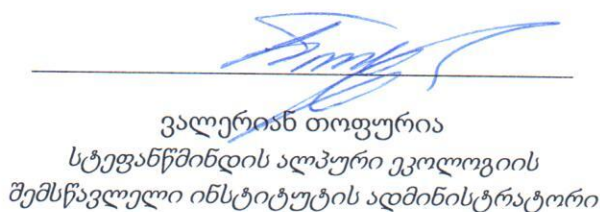 ვალერიან თოფურია
სტეფანწმინდის ალპური ეკოლოგიის
შემსწავლელი ინსტიტუტის ადმინისტრატორი